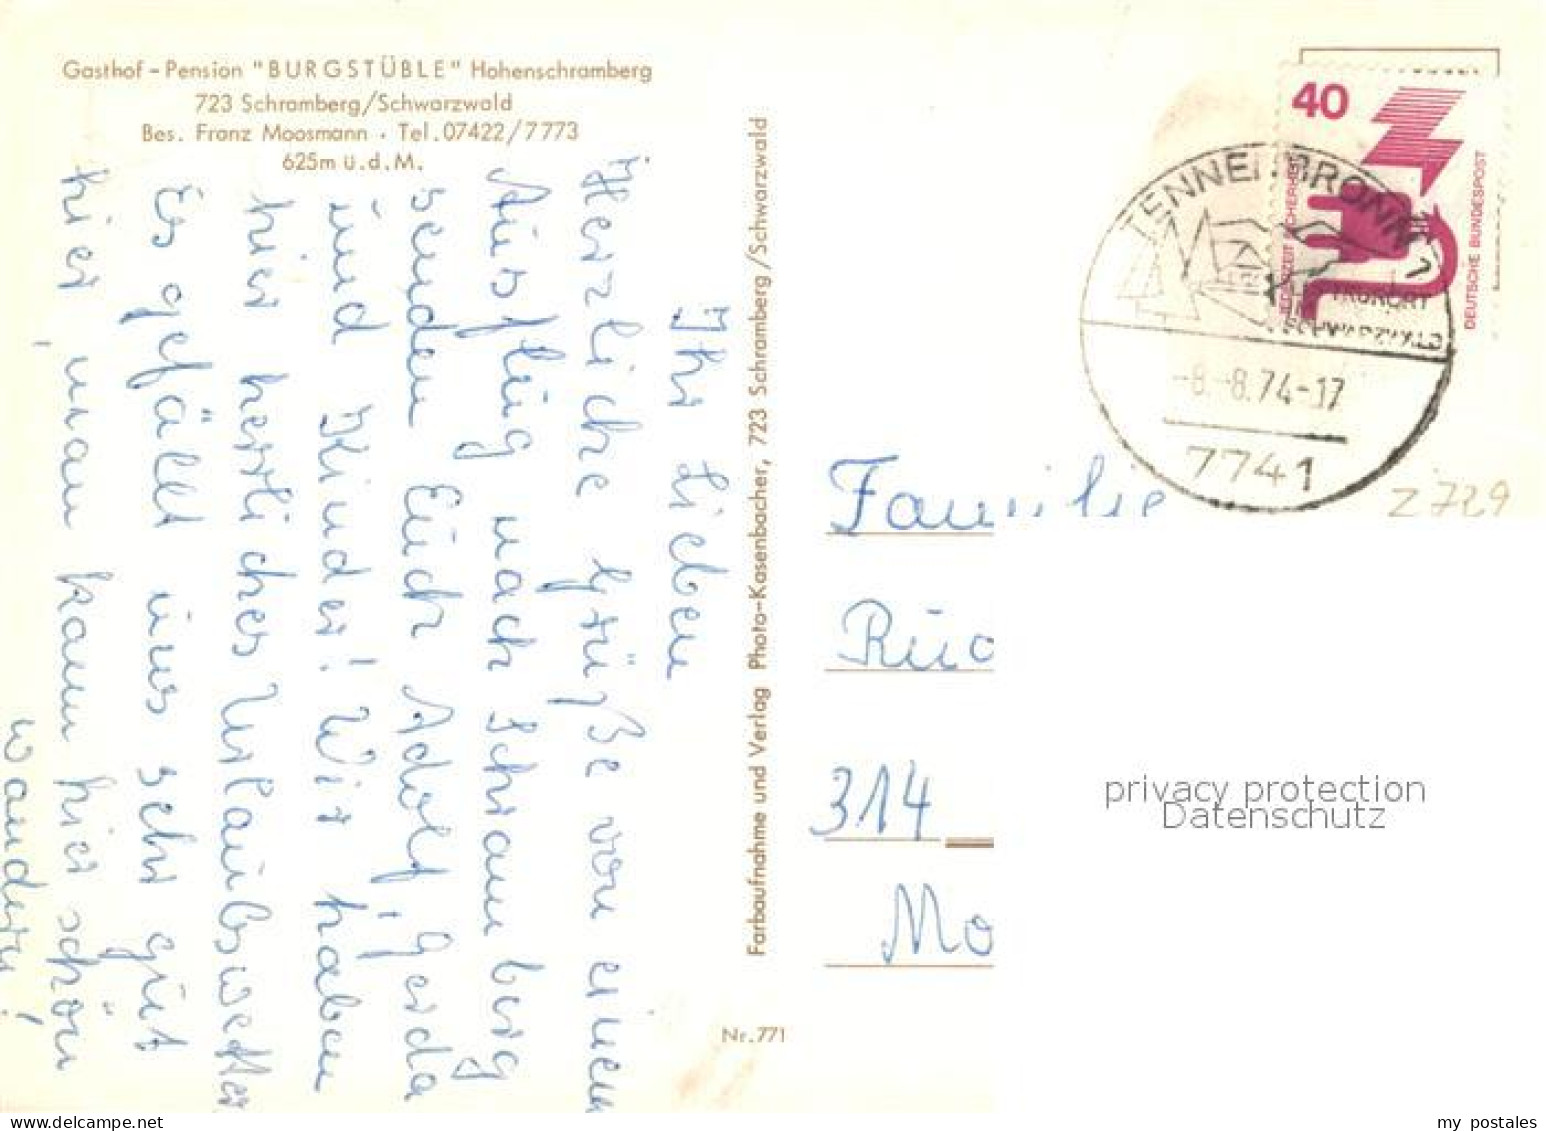 Gasthof - Pension "BURGSTÜBLE" Hohenschramberg
723 Schramberg/Schwarzwald
Bes. Franz Moosmann · Tel. 07422/7773
625m ü.d.M.
Ihr Lieben
Herzliche Grüße von einem
Ausflug nach Schramberg
senden Euch Adolf, Gerda
und Kinder! Wir haben
hier herrliches Urlaubswetter
Es gefällt uns sehr gut
hier, man kann hier schön
wandern!
Farbaufnahme und Verlag Photo-Kasenbacher, 723 Schramberg/Schwarzwald
Nr. 771
40
JEDERZEIT SICHERHEIT
DEUTSCHE BUNDESPOST
TENNENBRONN
SCHWARZWALD
-8.-8.74-17
7741
Z 729
Familie
314
Mo
privacy protection
Datenschutz
my postales